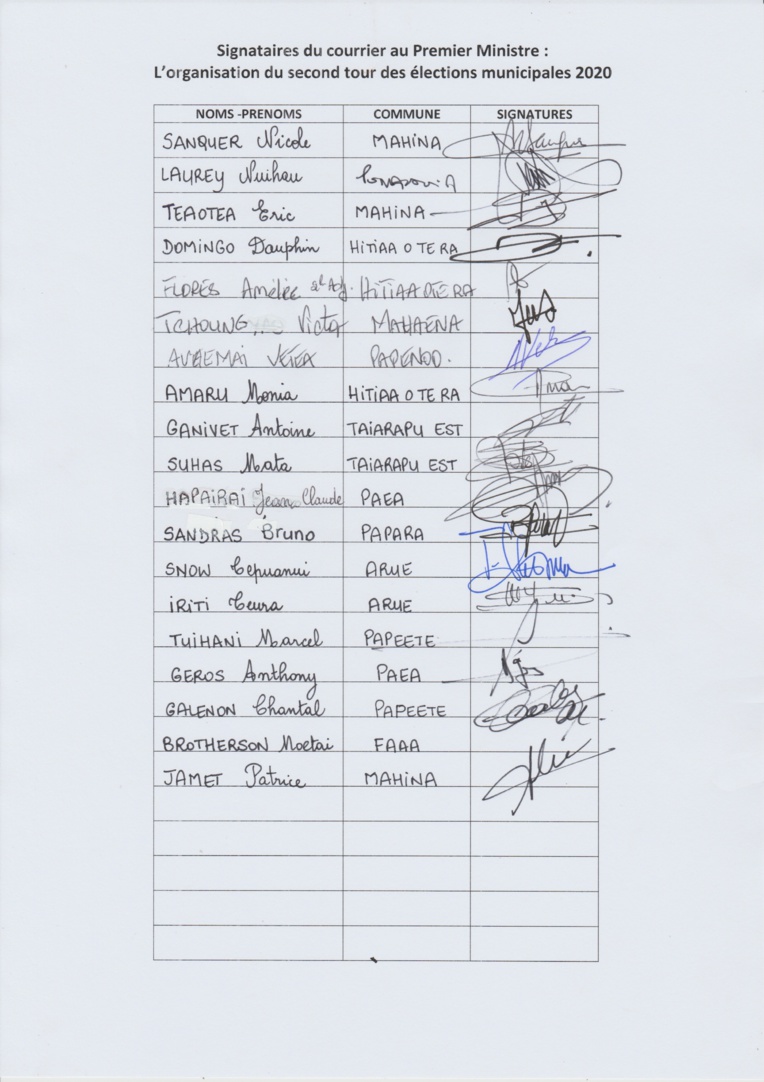 Signataires du courrier au Premier Ministre :
L'organisation du second tour des élections municipales 2020
NOMS -PRENOMS COMMUNE SIGNATURES
SANQUER Nicole MAHINA
LAUREY Nuihau
TEAOTEA Eric MAHINA
DOMINGO Dauphin HITIAA O TE RA
FLORES Amélie HITIAA O TE RA
TCHOUNG Victor MAHAENA
PAPENOO.
AMARU Monia HITIAA O TE RA
GANIVET Antoine TAIARAPU EST
SUHAS Mata TAIARAPU EST
HAPAIRAI Jean Claude PAEA
SANDRAS Bruno PAPARA
SNOW Tepuanui ARUE
IRITI Teura ARUE
TUIHANI Marcel PAPEETE
GEROS Anthony PAEA
GALENON Chantal PAPEETE
BROTHERSON Moetai FAAA
JAMET Patrice MAHINA